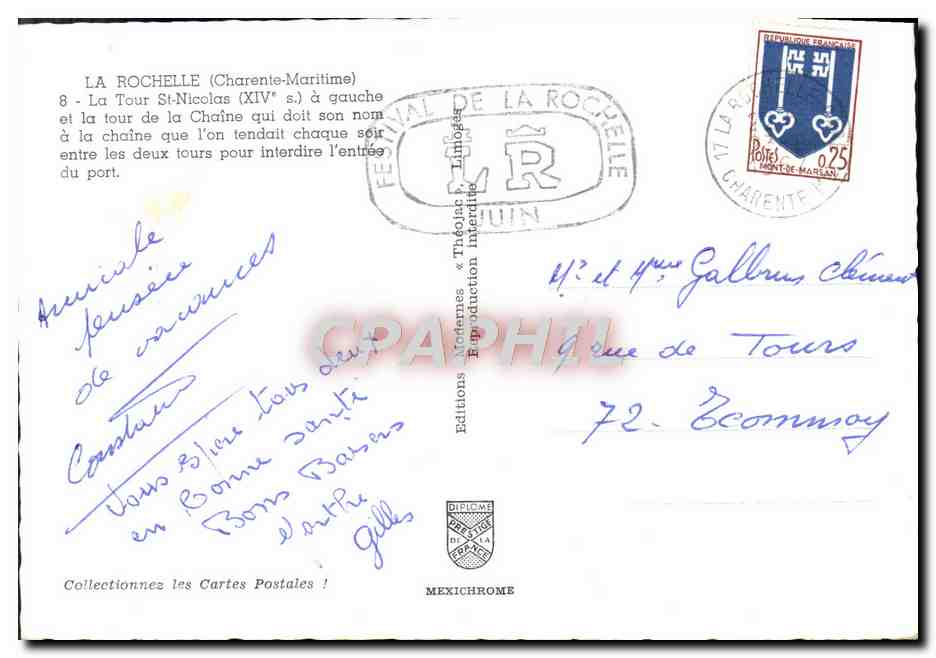 LA ROCHELLE (Charente-Maritime)
8 - La Tour St-Nicolas (XIVe s.) à gauche
et la tour de la Chaîne qui doit son nom
à la chaîne que l'on tendait chaque soir
entre les deux tours pour interdire l'entrée
du port.
FESTIVAL DE LA ROCHELLE
LR
JUIN
17 LA ROCHELLE
CHARENTE
REPUBLIQUE FRANÇAISE
POSTES
0.25
MONT-DE-MARSAN
Amicale
pensée
de vacances
Constant
Vous espère tous deux
en bonne santé
Bons Baisers
Gilles
Editions Modernes « Théojac », Limoges
Reproduction interdite
CPAPHIL
Mr et Mme Galbrus Clément
9 rue de Tours
72. Ecommoy
DIPLOME
PRESTIGE
DE LA
FRANCE
MEXICHROME
Collectionnez les Cartes Postales !